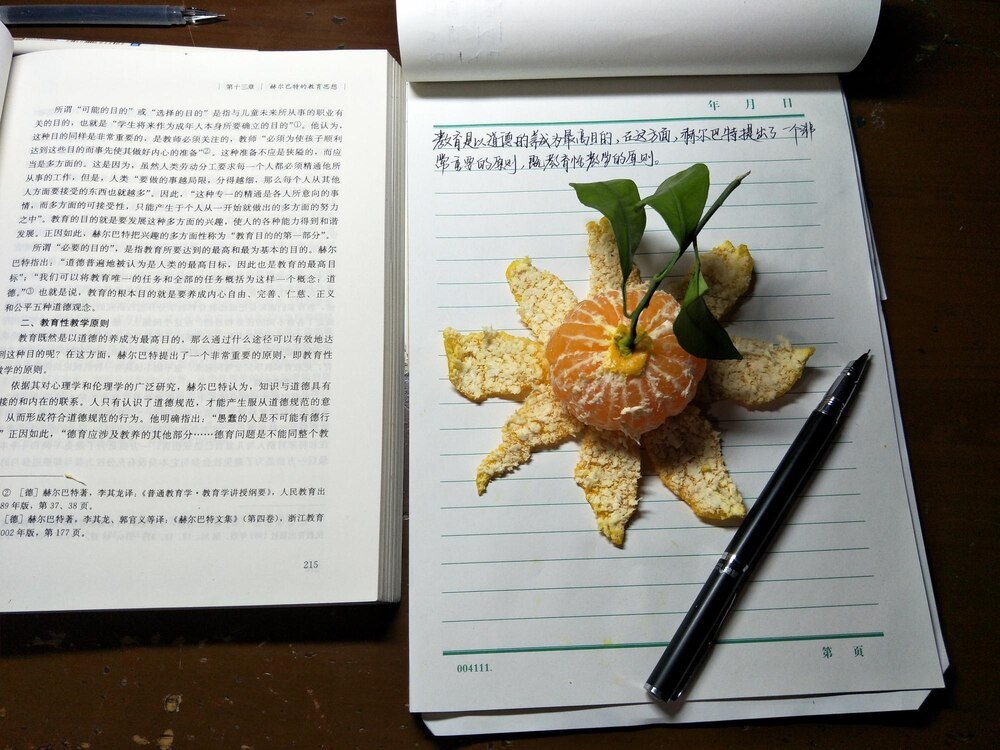 第十三章 | 赫尔巴特的教育思想 |
所谓“可能的目的”或“选择的目的”是指与儿童未来所从事的职业有
关的目的，也就是“学生将来作为成年人本身所要确立的目的”①。他认为，
这种目的同样是非常重要的，是教师必须关注的，教师“必须为使孩子顺利
达到这些目的而事先使其做好内心的准备”②。这种准备不应是狭隘的，而应
当是多方面的。这是因为，虽然人类劳动分工要求每一个人都必须精通他所
从事的工作，但是，人类“要做的事越局限，分得越细，那么每个人从其他
人方面要接受的东西也就越多”。因此，“这种专一的精通是各人所意向的事
情，而多方面的可接受性，只能产生于个人从一开始就做出的多方面的努力
之中”。教育的目的就是要发展这种多方面的兴趣，使人的各种能力得到和谐
发展。正因如此，赫尔巴特把兴趣的多方面性称为“教育目的的第一部分”。
所谓“必要的目的”，是指教育所要达到的最高和最为基本的目的。赫尔
巴特指出：“道德普遍地被认为是人类的最高目标，因此也是教育的最高目
标”；“我们可以将教育唯一的任务和全部的任务概括为这样一个概念：道
德。”③也就是说，教育的根本目的就是要养成内心自由、完善、仁慈、正义
和公平五种道德观念。
二、教育性教学原则
教育既然是以道德的养成为最高目的，那么通过什么途径可以有效地达
到这种目的呢？在这方面，赫尔巴特提出了一个非常重要的原则，即教育性
教学的原则。
依据其对心理学和伦理学的广泛研究，赫尔巴特认为，知识与道德具有
接的和内在的联系。人只有认识了道德规范，才能产生服从道德规范的意
从而形成符合道德规范的行为。他明确指出：“愚蠢的人是不可能有德行
”正因如此，“德育应涉及教养的其他部分……德育问题是不能同整个教
② ［德］赫尔巴特著，李其龙译：《普通教育学·教育学讲授纲要》，人民教育出
89年版，第37、38页。
［德］赫尔巴特著，李其龙、郭官义等译：《赫尔巴特文集》（第四卷），浙江教育
002年版，第177页。
215
年 月 日
教育是以道德的养成为最高目的，在这方面，赫尔巴特提出了一个非
常重要的原则，既教育性教学的原则。
004111.
第 页